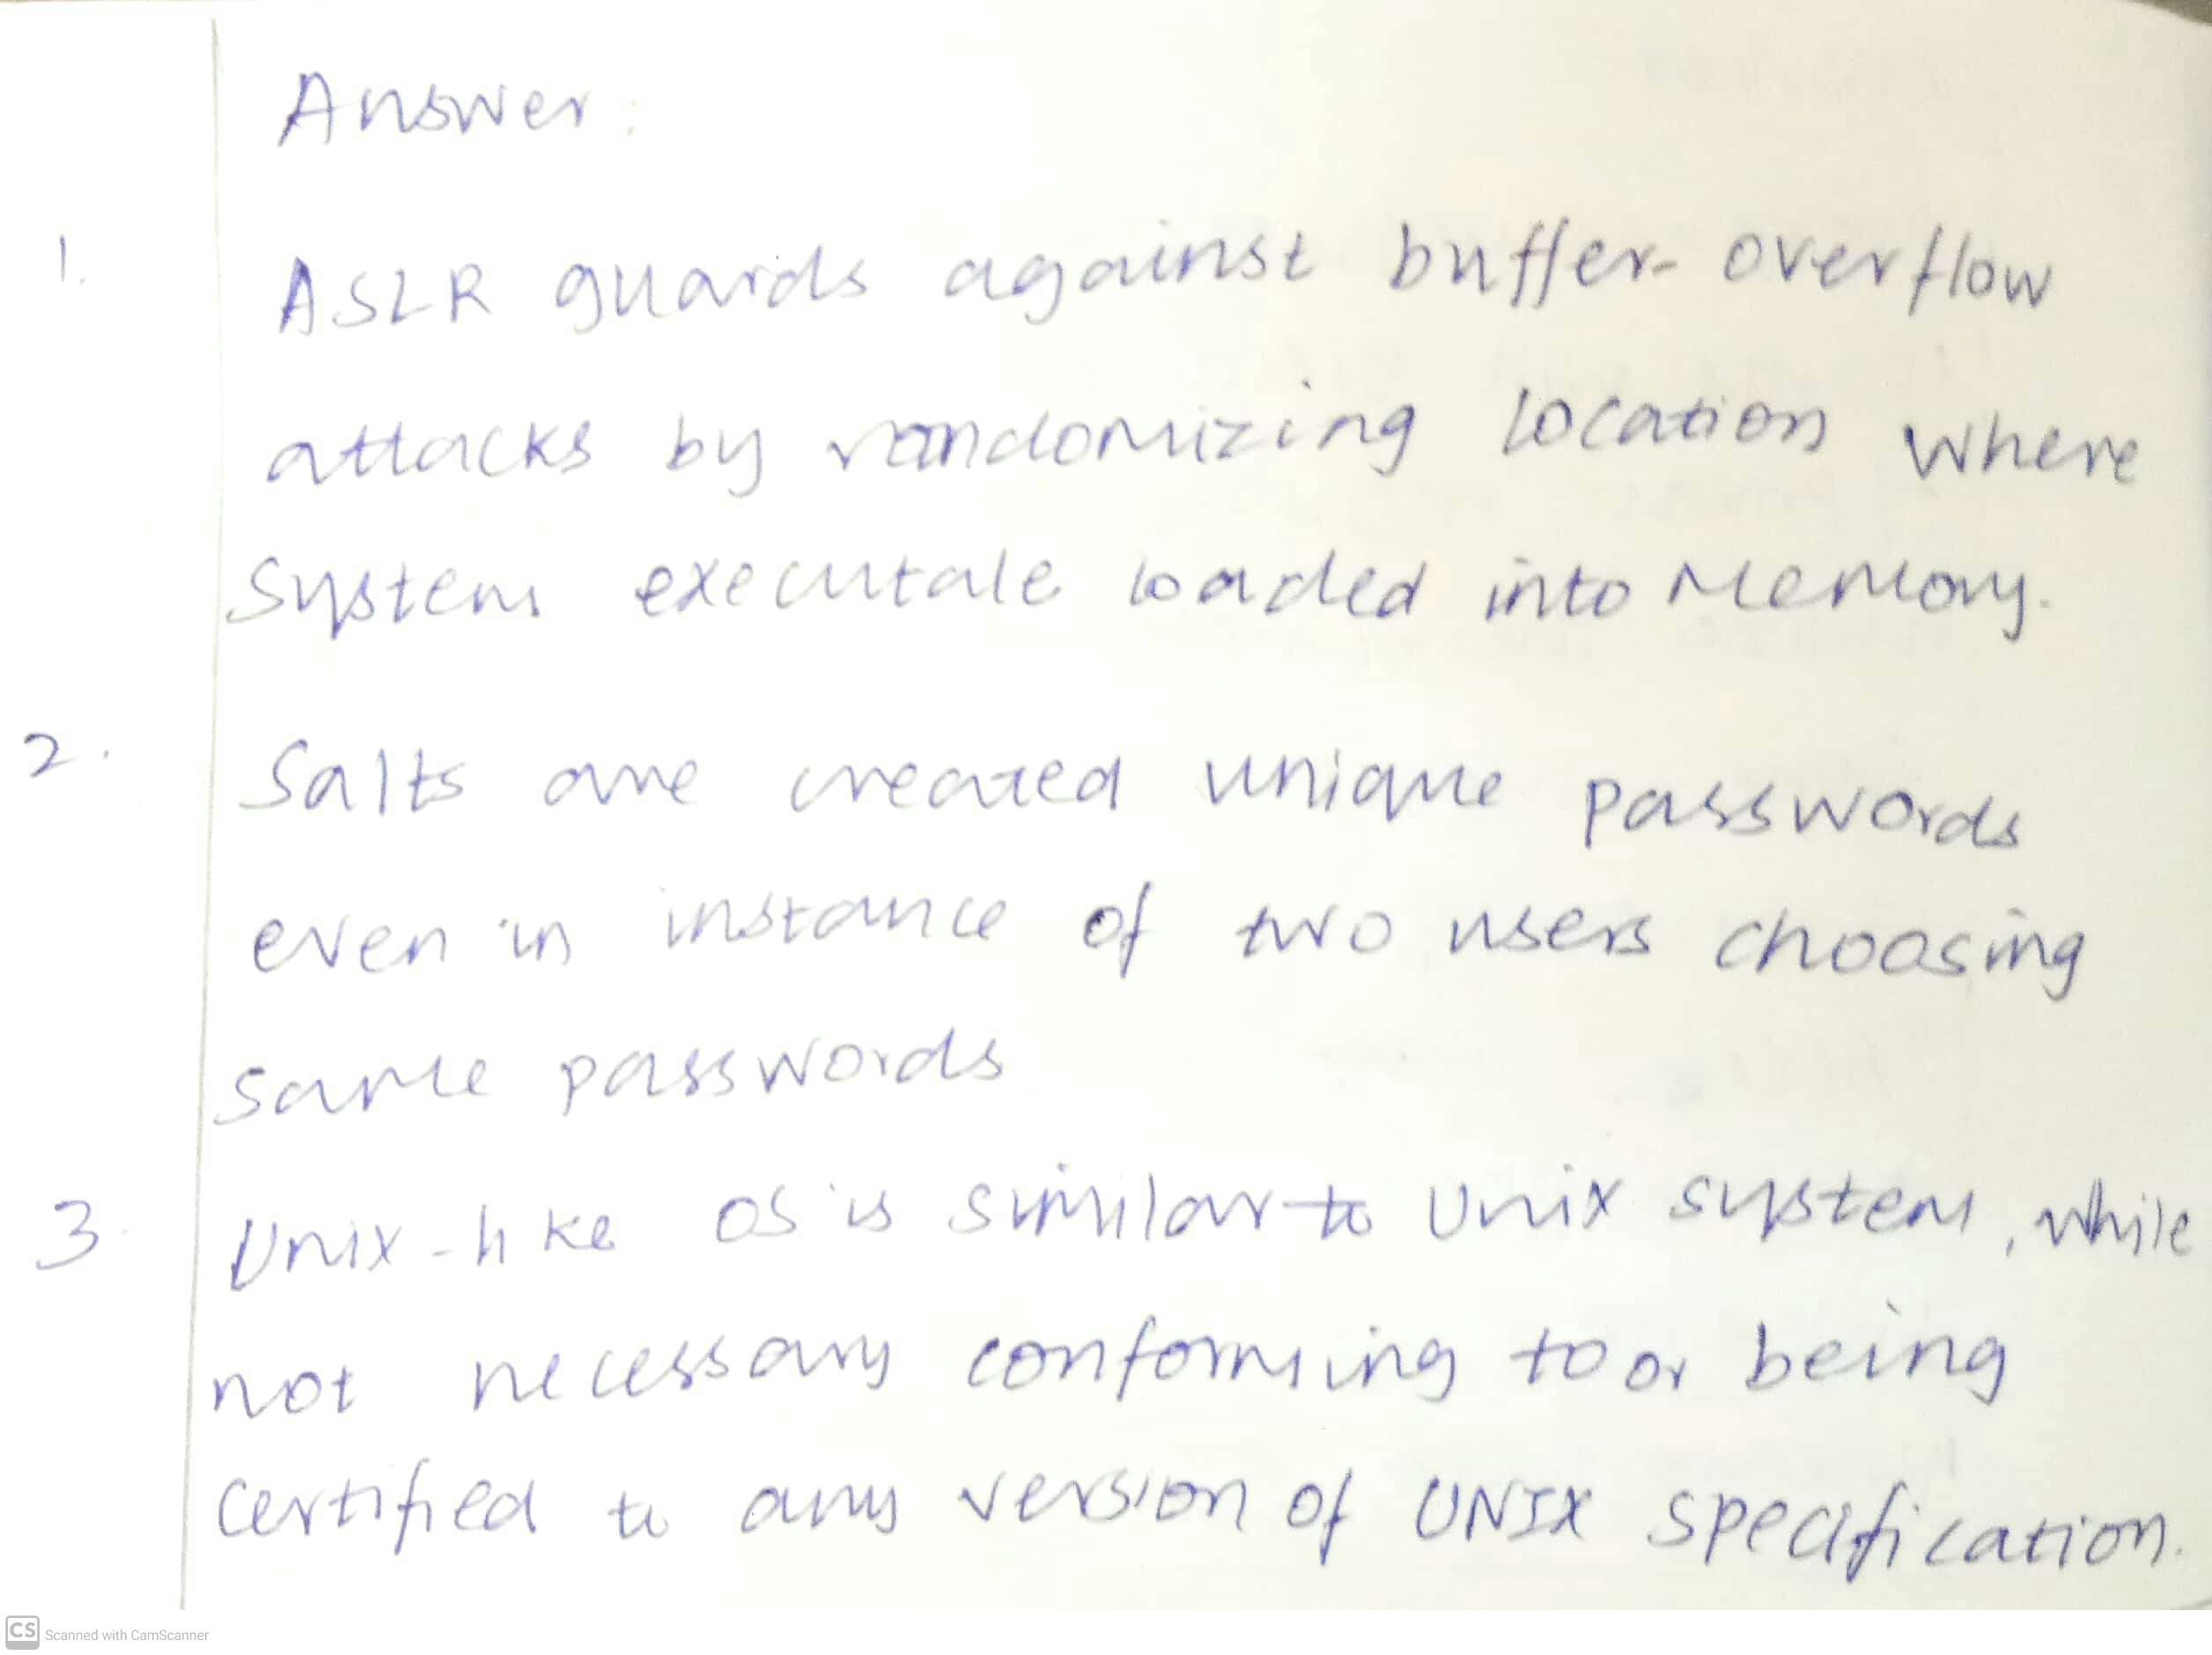 Answer:
1. ASLR guards against buffer-overflow
attacks by randomizing location where
System executale loaded into Memory.
2. Salts are created unique passwords
even in instance of two users choosing
same passwords
3. Unix-like OS is similar to Unix system, while
not necessary conforming to or being
certified to any version of UNIX specification.
CS Scanned with CamScanner